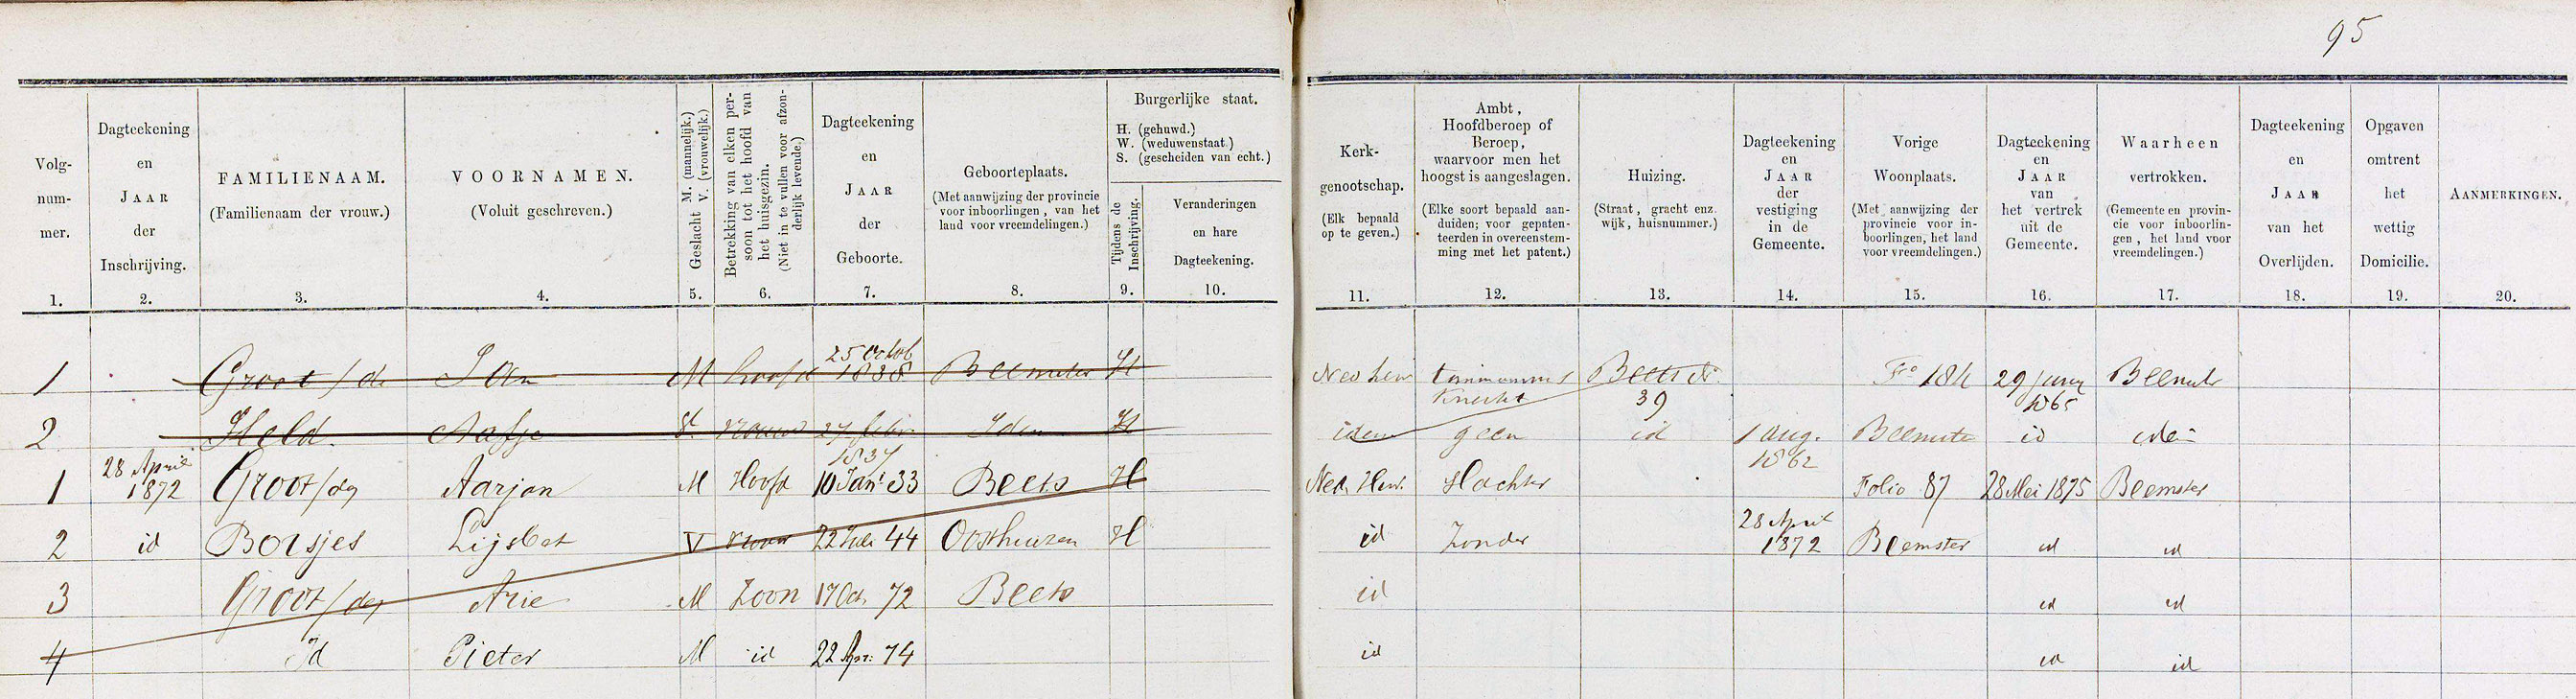 95
Volg-
num-
mer.
1.
Dagteekening
en
JAAR
der
Inschrijving.
2.
FAMILIENAAM.
(Familienaam der vrouw.)
3.
VOORNAMEN.
(Voluit geschreven.)
4.
Geslacht M. (mannelijk.)
V. (vrouwelijk.)
5.
Betrekking van elken per-
soon tot het hoofd van
het huisgezin.
(Niet in te vullen voor afzon-
derlijk levende.)
6.
Dagteekening
en
JAAR
der
Geboorte.
7.
Geboorteplaats.
(Met aanwijzing der provincie
voor inboorlingen, van het
land voor vreemdelingen.)
8.
Burgerlijke staat.
H. (gehuwd.)
W. (weduwenstaat.)
S. (gescheiden van echt.)
Tijdens de
Inschrijving.
9.
Veranderingen
en hare
Dagteekening.
10.
Kerk-
genootschap.
(Elk bepaald
op te geven.)
11.
Ambt,
Hoofdberoep of
Beroep,
waarvoor men het
hoogst is aangeslagen.
(Elke soort bepaald aan-
duiden; voor gepaten-
teerden in overeenstem-
ming met het patent.)
12.
Huizing.
(Straat, gracht enz.
wijk, huisnummer.)
13.
Dagteekening
en
JAAR
der
vestiging
in de
Gemeente.
14.
Vorige
Woonplaats.
(Met aanwijzing der
provincie voor in-
boorlingen, het land
voor vreemdelingen.)
15.
Dagteekening
en
JAAR
van
het vertrek
uit de
Gemeente.
16.
Waarheen
vertrokken.
(Gemeente en provin-
cie voor inboorlin-
gen, het land voor
vreemdelingen.)
17.
Dagteekening
en
JAAR
van het
Overlijden.
18.
Opgaven
omtrent
het
wettig
Domicilie.
19.
AANMERKINGEN.
20.
1 Groot / de Jan M hoofd 25 Octob 1838 Beemster H Ned herv timmermans knecht Beets N. 39 Fo 184 29 juny 1865 Beemster
2 Held Aafje V. vrouw 27 febr 1837 Idem H idem geen id 1 aug. 1862 Beemster id idem
1 28 April 1872 Groot / de Aarjan M Hoofd 10 Jan 33 Beets H Ned. Herv. Slachter Folio 87 28 Mei 1875 Beemster
2 id Botsjes Lijsbet V vrouw 22 Juli 44 Oosthuizen H id Zonder 28 April 1872 Beemster id id
3 Groot / de Arie M Zoon 17 Oct. 72 Beets id id id
4 Id Pieter M id 22 Apr. 74 id id id